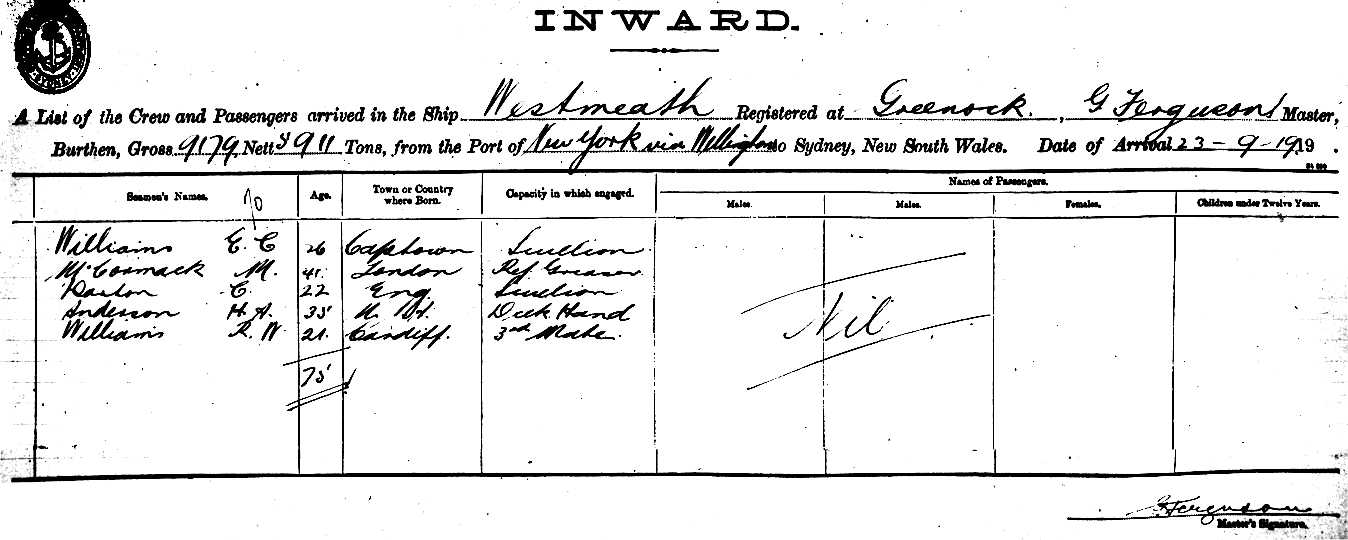 INWARD.
SYDNEY
A List of the Crew and Passengers arrived in the Ship Westmeath Registered at Greenock. , G Ferguson Master,
Burthen, Gross 9179 Nett 5911 Tons, from the Port of New York via Wellington to Sydney, New South Wales. Date of Arrival 23-9-1919.
Seamen's Names. Age. Town or Country where Born. Capacity in which engaged. Names of Passengers.
Males. Males. Females. Children under Twelve Years.
70
Williams E. C 26 Capetown Scullion
McCormack M. 41. London Ref Greaser
C. 22 Eng Scullion
Anderson H. A. 35 Deck Hand
Williams R. W 21. Cardiff. 3rd Mate.
Nil
75
G Ferguson
Master's Signature.